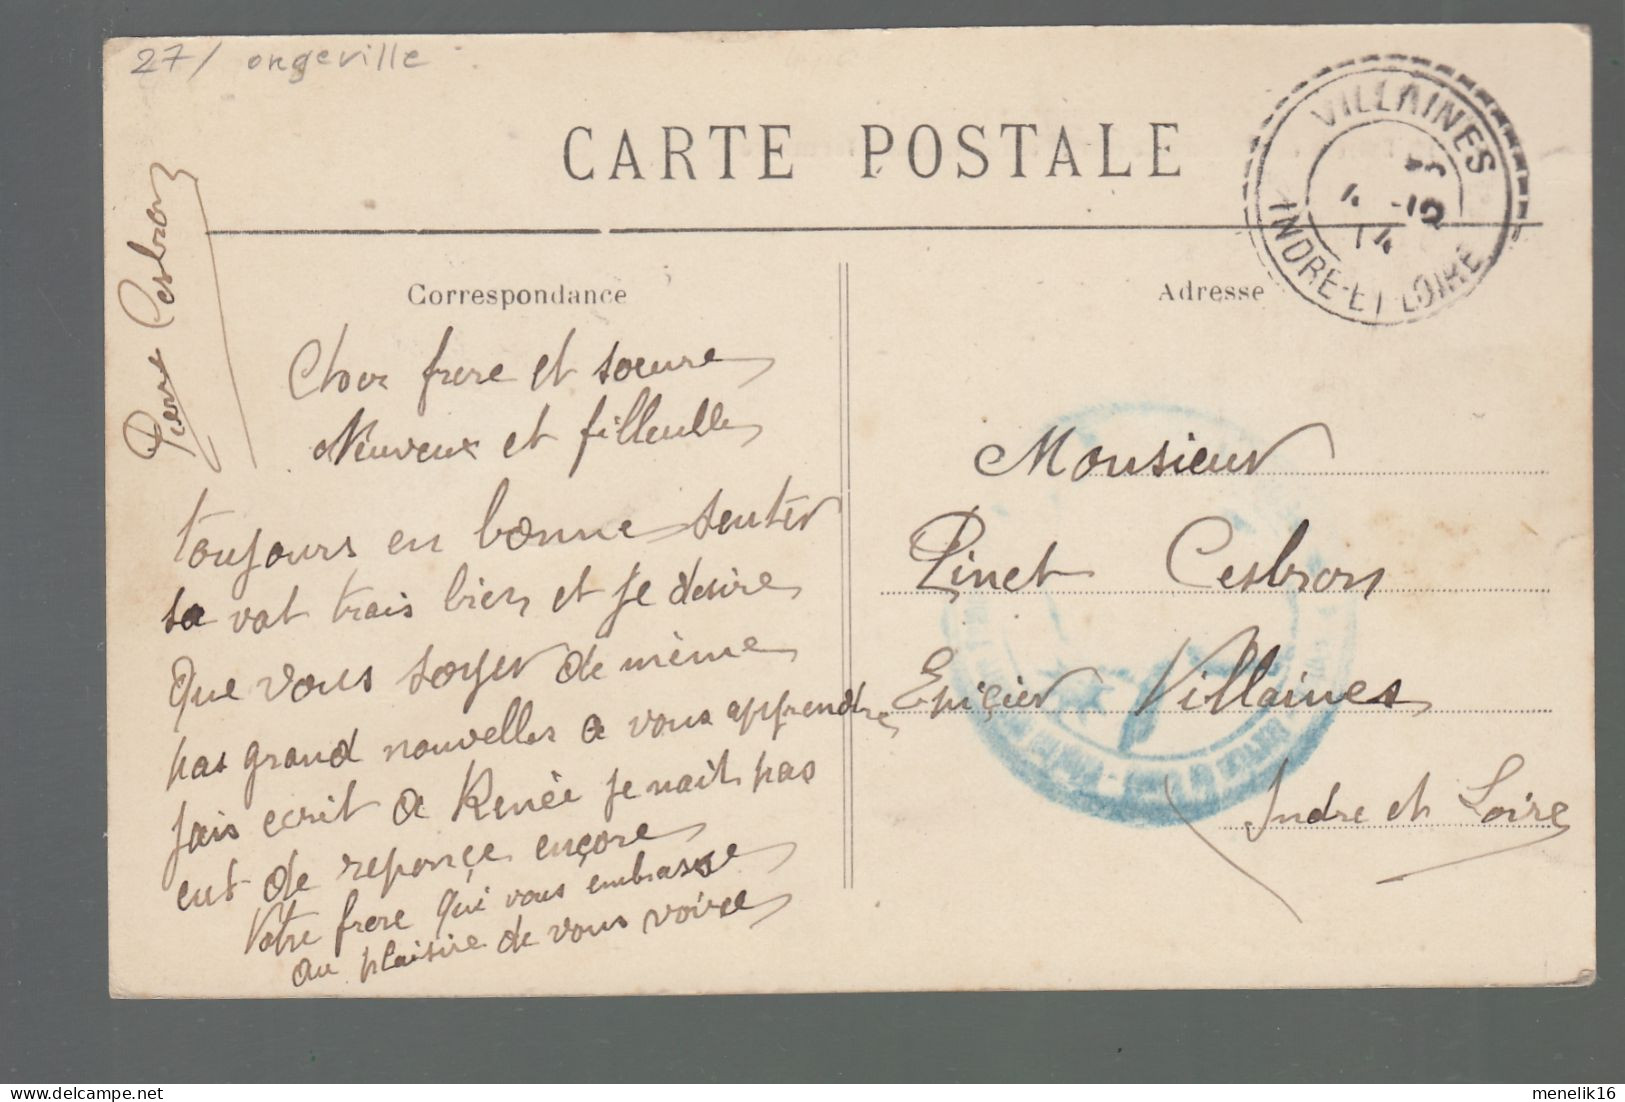 27/ ongeville
CARTE POSTALE
VILLAINES
4 -10
14
INDRE-ET-LOIRE
Pierre Cesbron
Correspondance
Cher frere et soeure
Neuveux et filleulle
toujours en bonne senter
sa vat trais bien et je desire
que vous soyer de mème
pas grand nouvelles a vous apprendre
jais ecrit a Renèe je nait pas
eut de reponçe ençore
Votre frere qui vous embrasse
au plaisire de vous voire
Adresse
Monsieur
Pinet Cesbron
Epiçier Villaines
Indre et Loire
delcampe.net
menelik16